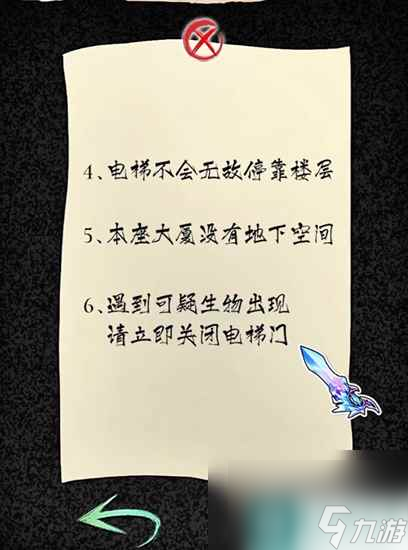 4、电梯不会无故停靠楼层
5、本座大厦没有地下空间
6、遇到可疑生物出现
请立即关闭电梯门
九游